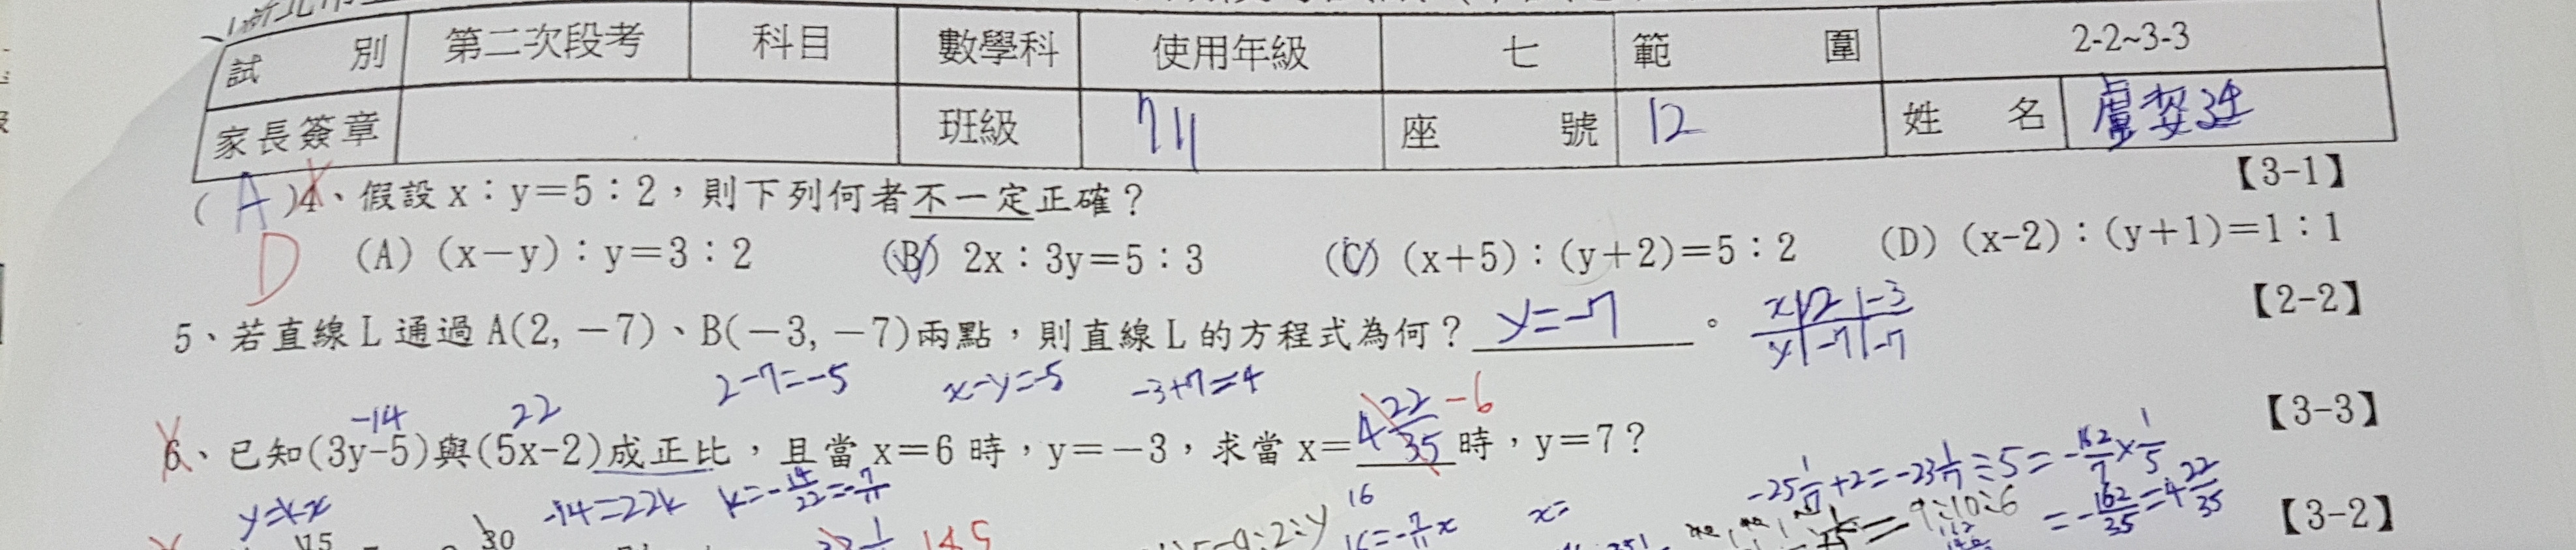 試別 第二次段考 科目 數學科 使用年級 七 範圍 2-2~3-3
家長簽章 班級 711 座號 12 姓名
(A)4、假設 x：y＝5：2，則下列何者不一定正確？ 【3-1】
D (A) (x－y)：y＝3：2 (B) 2x：3y＝5：3 (C) (x+5)：(y+2)＝5：2 (D) (x-2)：(y+1)＝1：1
5、若直線 L 通過 A(2, －7)、B(－3, －7)兩點，則直線 L 的方程式為何？ y=-7 。 【2-2】
x 2 -3
y -7 -7
2-7=-5 x-y=-5 -3+7=4
-14 22
6、已知(3y-5)與(5x-2)成正比，且當 x＝6 時，y＝－3，求當 x＝4 22/35 時，y＝7？ 【3-3】
-6
y=kx -14=22k k=-14/22=-7/11 16 x=
16=-7/11x
-25 1/7+2=-23 1/7÷5=-162/7×1/5
=-162/35=4 22/35
【3-2】